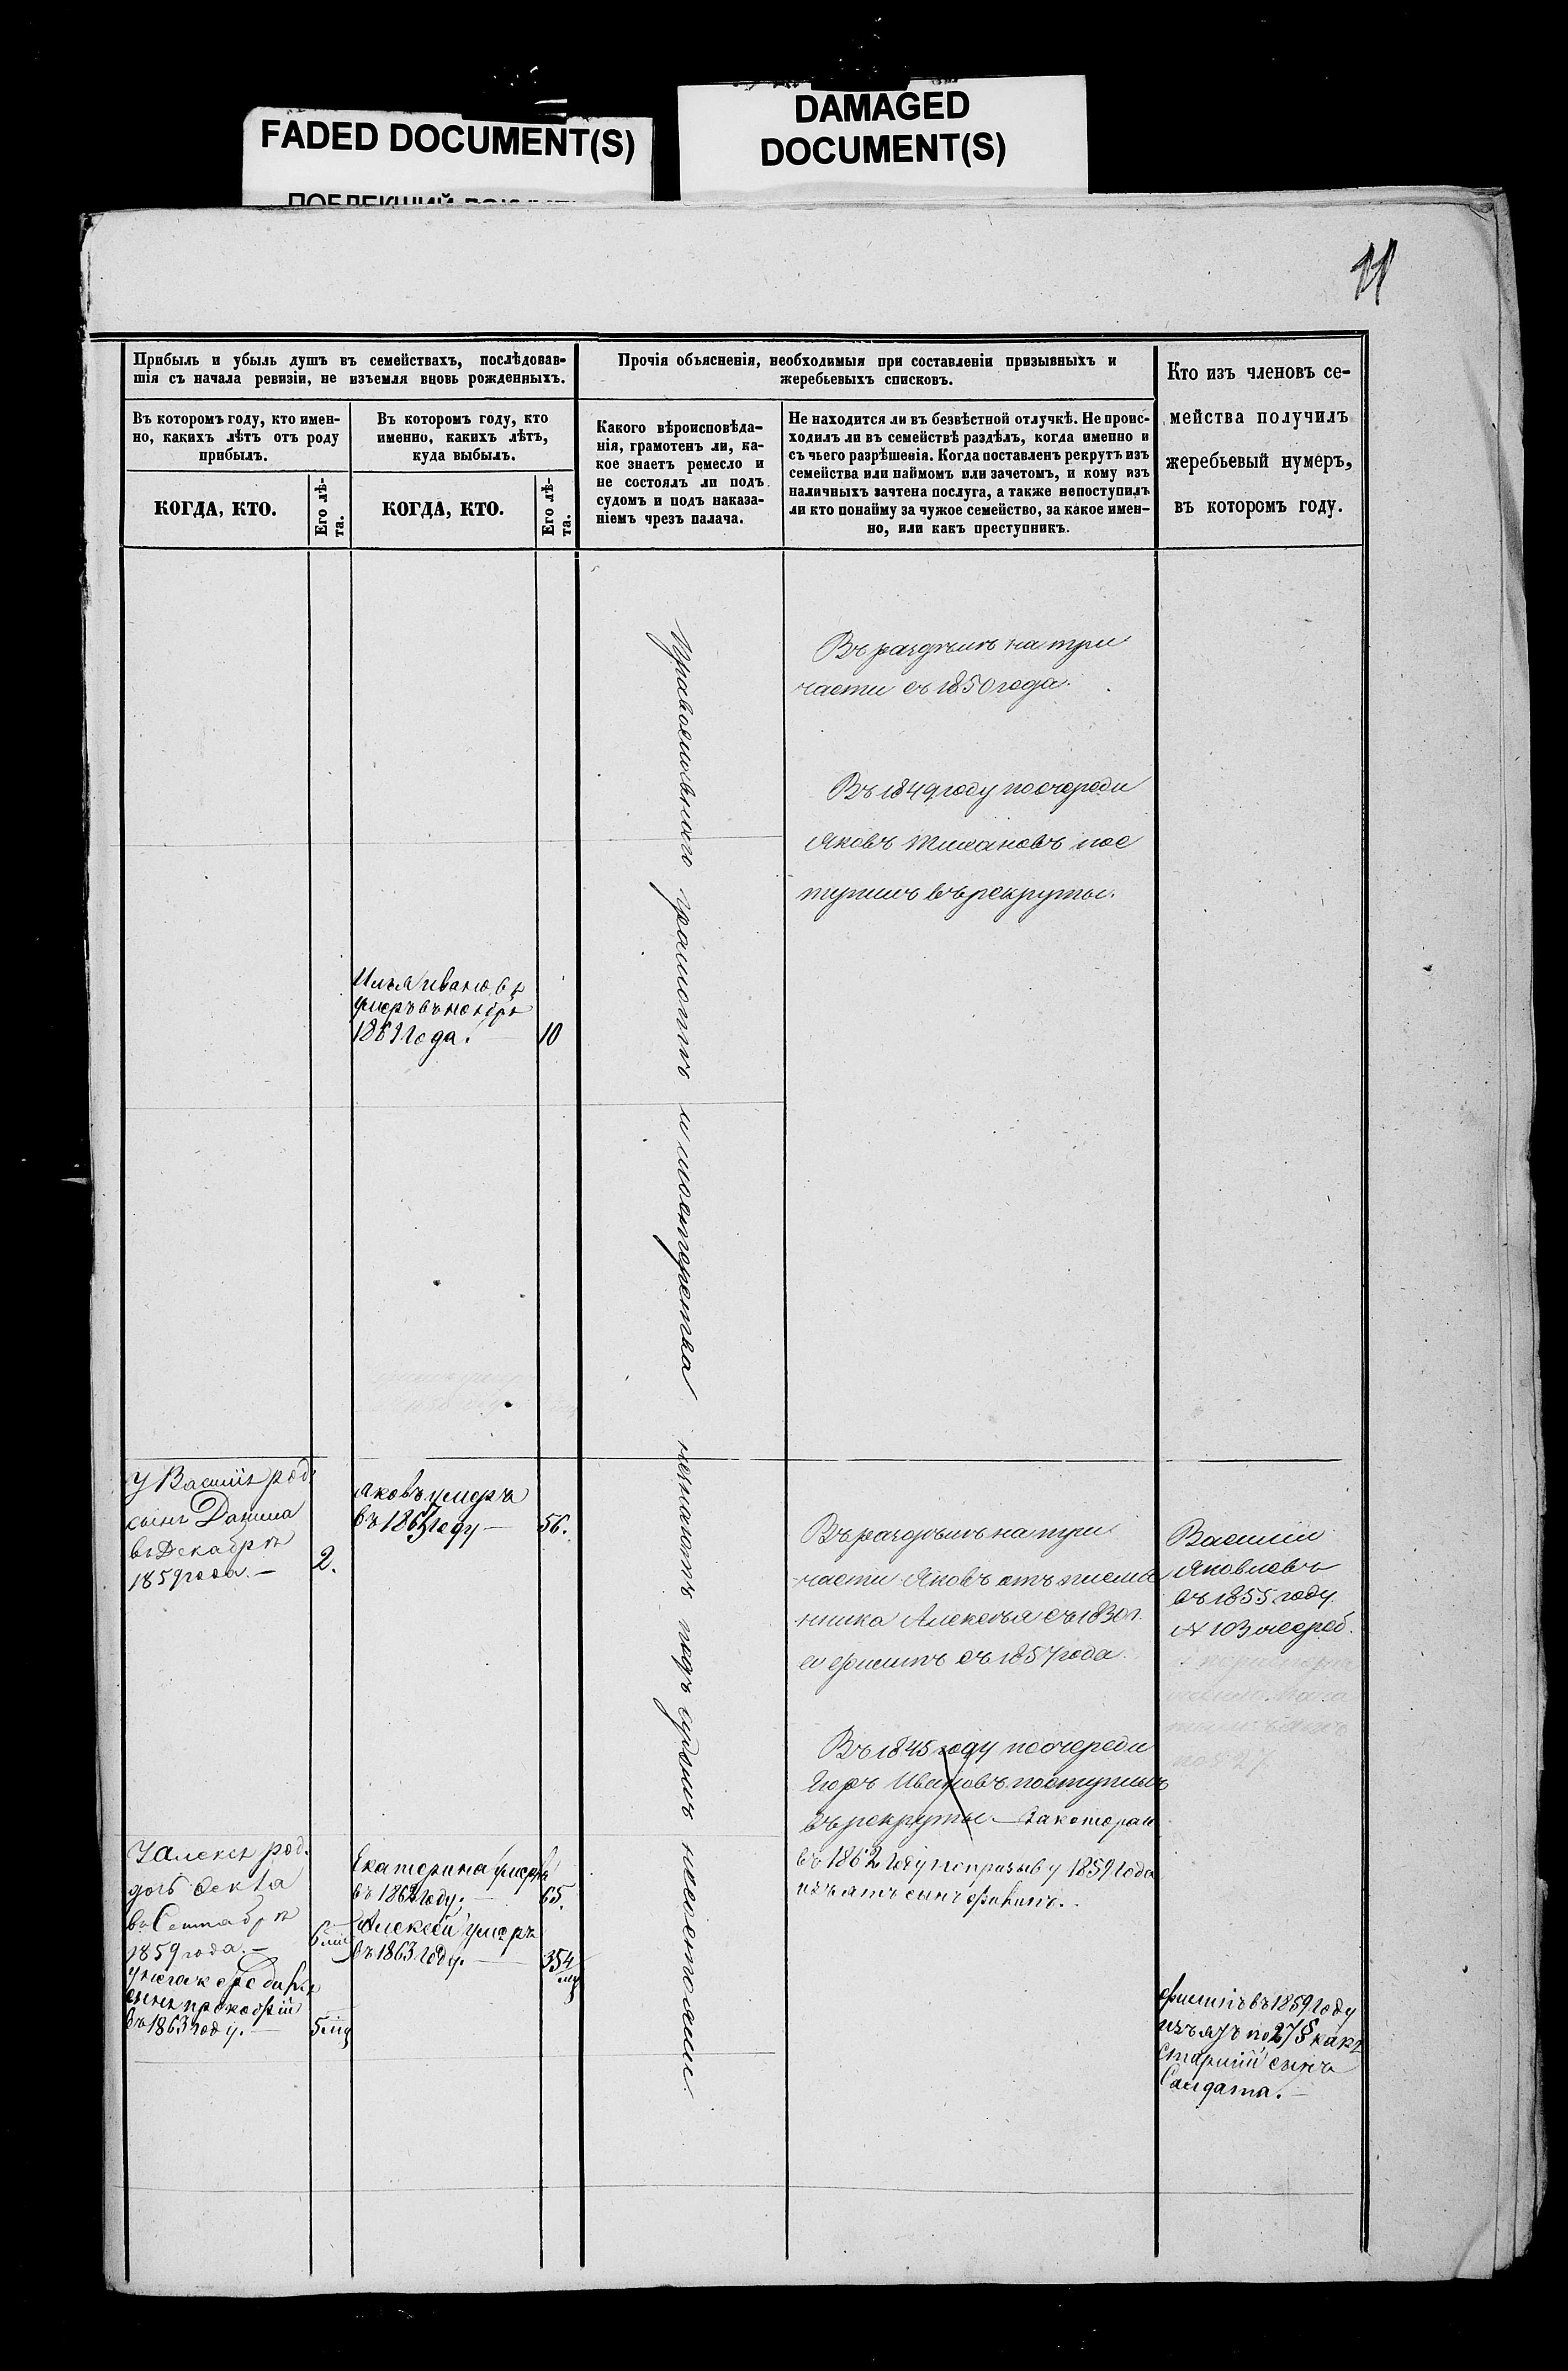 FADED DOCUMENT(S)
DAMAGED
DOCUMENT(S)
11
Прибыль и убыль душъ въ семействахъ, послѣдовав-
шія съ начала ревизіи, не изъемля вновь рожденныхъ.
Въ которомъ году, кто имен-
но, какихъ лѣтъ отъ роду
прибылъ.
КОГДА, КТО.
Его лѣ-
та.
Въ которомъ году, кто
именно, какихъ лѣтъ,
куда выбылъ.
КОГДА, КТО.
Его лѣ-
та.
Прочія объясненія, необходимыя при составленіи призывныхъ и
жеребьевыхъ списковъ.
Какого вѣроисповѣда-
нія, грамотенъ ли, ка-
кое знаетъ ремесло и
не состоялъ ли подъ
судомъ и подъ наказа-
ніемъ чрезъ палача.
Не находится ли въ безвѣстной отлучкѣ. Не проис-
ходилъ ли въ семействѣ раздѣлъ, когда именно и
съ чьего разрѣшенія. Когда поставленъ рекрутъ изъ
семейства или наймомъ или зачетомъ, и кому изъ
наличныхъ зачтена послуга, а также непоступилъ
ли кто понайму за чужое семейство, за какое имен-
но, или какъ преступникъ.
Кто изъ членовъ се-
мейства получилъ
жеребьевый нумеръ,
въ которомъ году.
Въ раздѣлѣ на три
части съ 1850 года.
Въ 1849 году по очереди
Яковъ пос
тупилъ въ рекруты.
Илья Ивановъ
умеръ въ ноябрѣ
1861 года. 10
Православного грамотѣ и мастерства незнаютъ подъ судомъ несостояли.
У Василія род.
сынъ Данила
въ Декабрѣ
1859 года. — 2.
Яковъ умеръ
въ году — 56.
Въ раздѣлѣ на три
части Яковъ отъ племя
нника Алексѣя съ 1830 г.
съ 1857 года.
Василій
Яковлевъ
въ 1855 году
№ 103 жереб.
Въ 1845 году по очереди
Егоръ Ивановъ поступилъ
въ рекруты — за которай
въ 1862 году по призыву 1859 года
изъятъ сынъ
У Алексѣя род.
дочь Фекла
въ Сентябрѣ
1859 года. — 6 міс
сынъ Прокофій
въ 1863 году. — 5 міс
Екатерина умерла
въ 1862 году. — 65.
Алексей умеръ
въ 1863 году. — 35
Филипъ въ 1859 году
изъятъ по 27 § какъ
старшій сынъ
Салдата. —